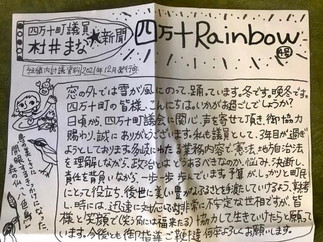 四万十町議員
村井まな★新聞
四万十Rainbow
2021年12月
窓の外では雪が風にのって、踊っています。冬です。晩冬です。
四万十町の皆様、こんにちは。いかがお過ごしでしょうか?
日頃から、四万十町議会に関心、声を寄せて頂き、御協力
賜わり、誠にありがとうございます。私も議員として、3年目が過ぎ
ようとしております。多岐にわたる業務内容で、憲法、地方自治法
を理解しながら、政治とはどうあるべきなのか、悩み、決断し、
責任を背負いながら、一歩一歩歩んでいます。予算が、しっかりと町民
にとって役立ち、後世に美しい豊かなふるさとを残していけるよう、
時には、迅速に対応している
不安定な世相ですが、皆
様と笑顔で(笑う角には福来たる)協力して生きていけたらと願って
います。今後とも御指導ご鞭撻何卒よろしくお願いします。